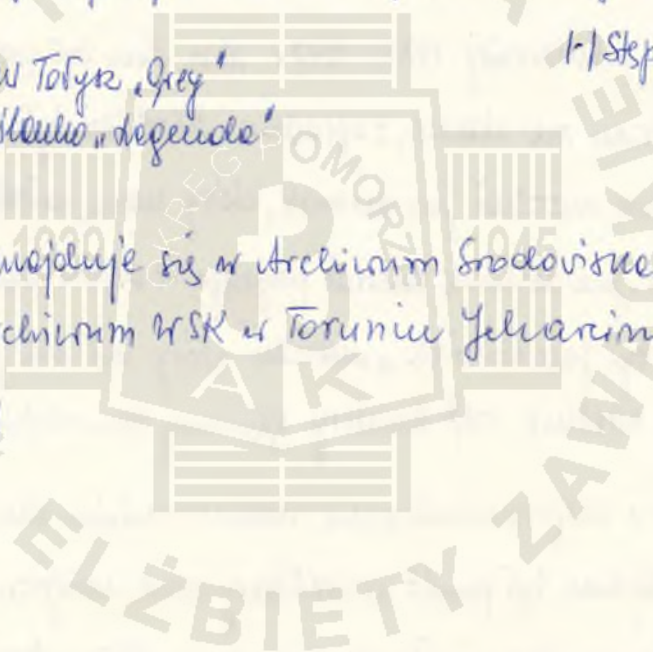 /-/ Stęp
w Tołysz „Grey"
„Legenda"
znajduje się w Archiwum Środowiska
Archiwum WSK w Toruniu
OKRĘG POMORZ
1939 1945
AK
ELŻBIETY ZAWACKIE